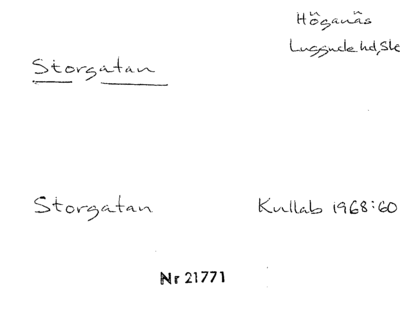 Höganäs
Luggude hd, Sk
Storgatan
Storgatan Kullab 1968:60
Nr 21771